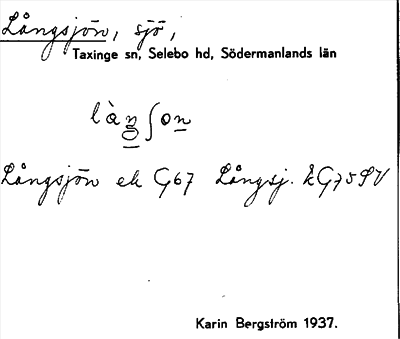 Långsjön, sjö,
Taxinge sn, Selebo hd, Södermanlands län
Långsjön ek G67 Långsj. kG75SV
Karin Bergström 1937.